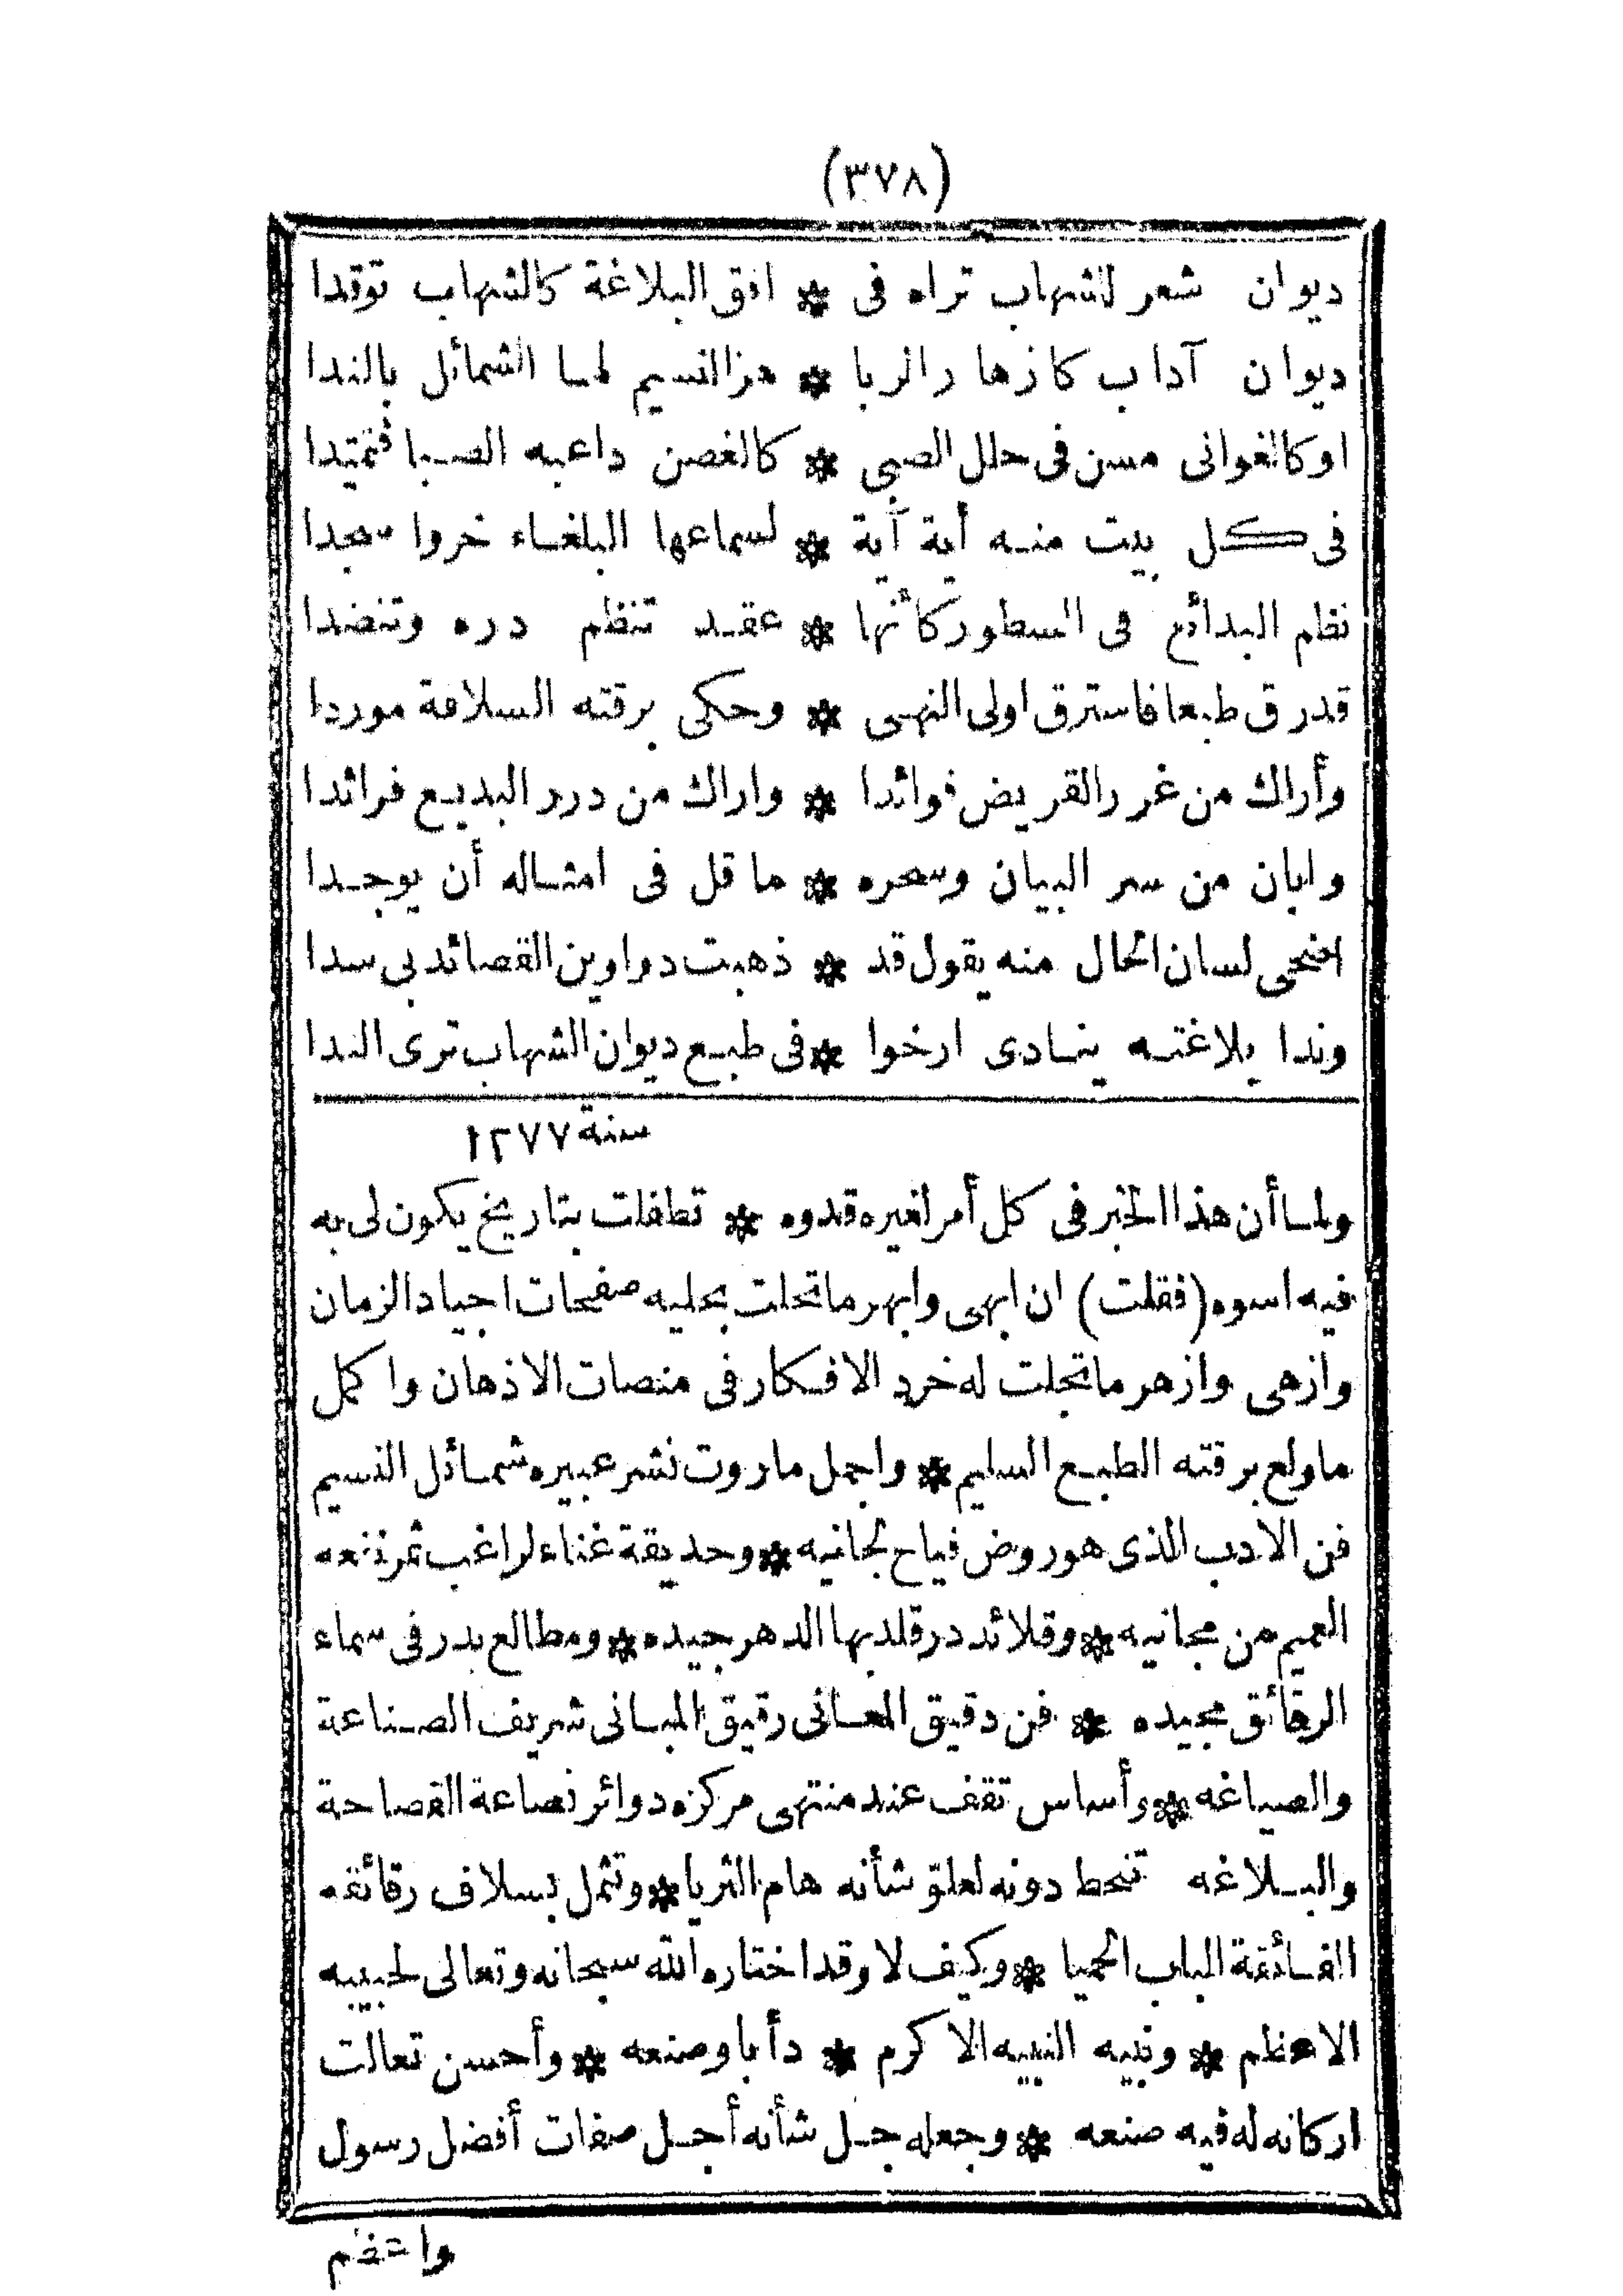 (٣٧٨)
ديوان شعر للشهاب تراه فى * افق البلاغة كالشهاب توقدا
ديوان آداب كازهار الربا * هز النسيم لها الشمائل بالندا
او كالغوانى مسن فى حلل الصبى * كالغصن داعبه الصبا فتميدا
فى كل بيت منه أية آية * لسماعها البلغاء خروا سجدا
نظم البدائع فى السطور كأنها * عقد تنظم دره وتنضدا
قدرق طبعا فاسترق اولى النهى * وحكى برقته السلافة موردا
وأراك من غرر القريض فوائدا * واراك من درر البديع فرائدا
وابان من سر البيان وسحره * ما قل فى امثاله أن يوجدا
اضحى لسان الحال منه يقول قد * ذهبت دواوين القصائد بى سدا
وندا بلاغته ينادى ارخوا * فى طبع ديوان الشهاب ترى الندا
سنة ١٢٧٧
ولما أن هذا الخبر فى كل أمر لغيره قدوه * تطفلت بتاريخ يكون لى به
فيه اسوه (فقلت) ان ابهى وابهر ما تحلت بحليه صفحات اجياد الزمان
وازهى وازهر ما تجلت له خرد الافكار فى منصات الاذهان واكمل
ما ولع برقته الطبع السليم * واجمل ما روت نشر عبيره شمائل النسيم
فن الادب الذى هو روض فياح لجانيه * وحديقة غناء لراغب ثمر نفعه
العميم من مجانيه * وقلائد در قلد بها الدهر جيده * ومطالع بدر فى سماء
الرقائق مجيده * فن دقيق المعانى رقيق المبانى شريف الصناعة
والصياغه * وأساس تقف عند منتهى مركزه دوائر نصاعة الفصاحة
والبلاغه تنحط دونه لعلو شأنه هام الثريا * وتثمل بسلاف رقائقه
الفائقة الباب الحميا * وكيف لا وقد اختاره الله سبحانه وتعالى لحبيبه
الاعظم * ونبيه النبيه الاكرم * دأبا وصنعه * وأحسن تعالت
اركانه له فيه صنعه * وجعله جل شأنه أجل صفات أفضل رسول
واعظم